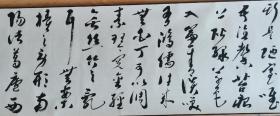 斯是陋室唯
吾德馨苔痕
上階綠草色
入簾青談笑
有鴻儒往來
無白丁可以調
素琴閱金經
無絲竹之亂
耳無案牘
之勞形南
陽諸葛廬西